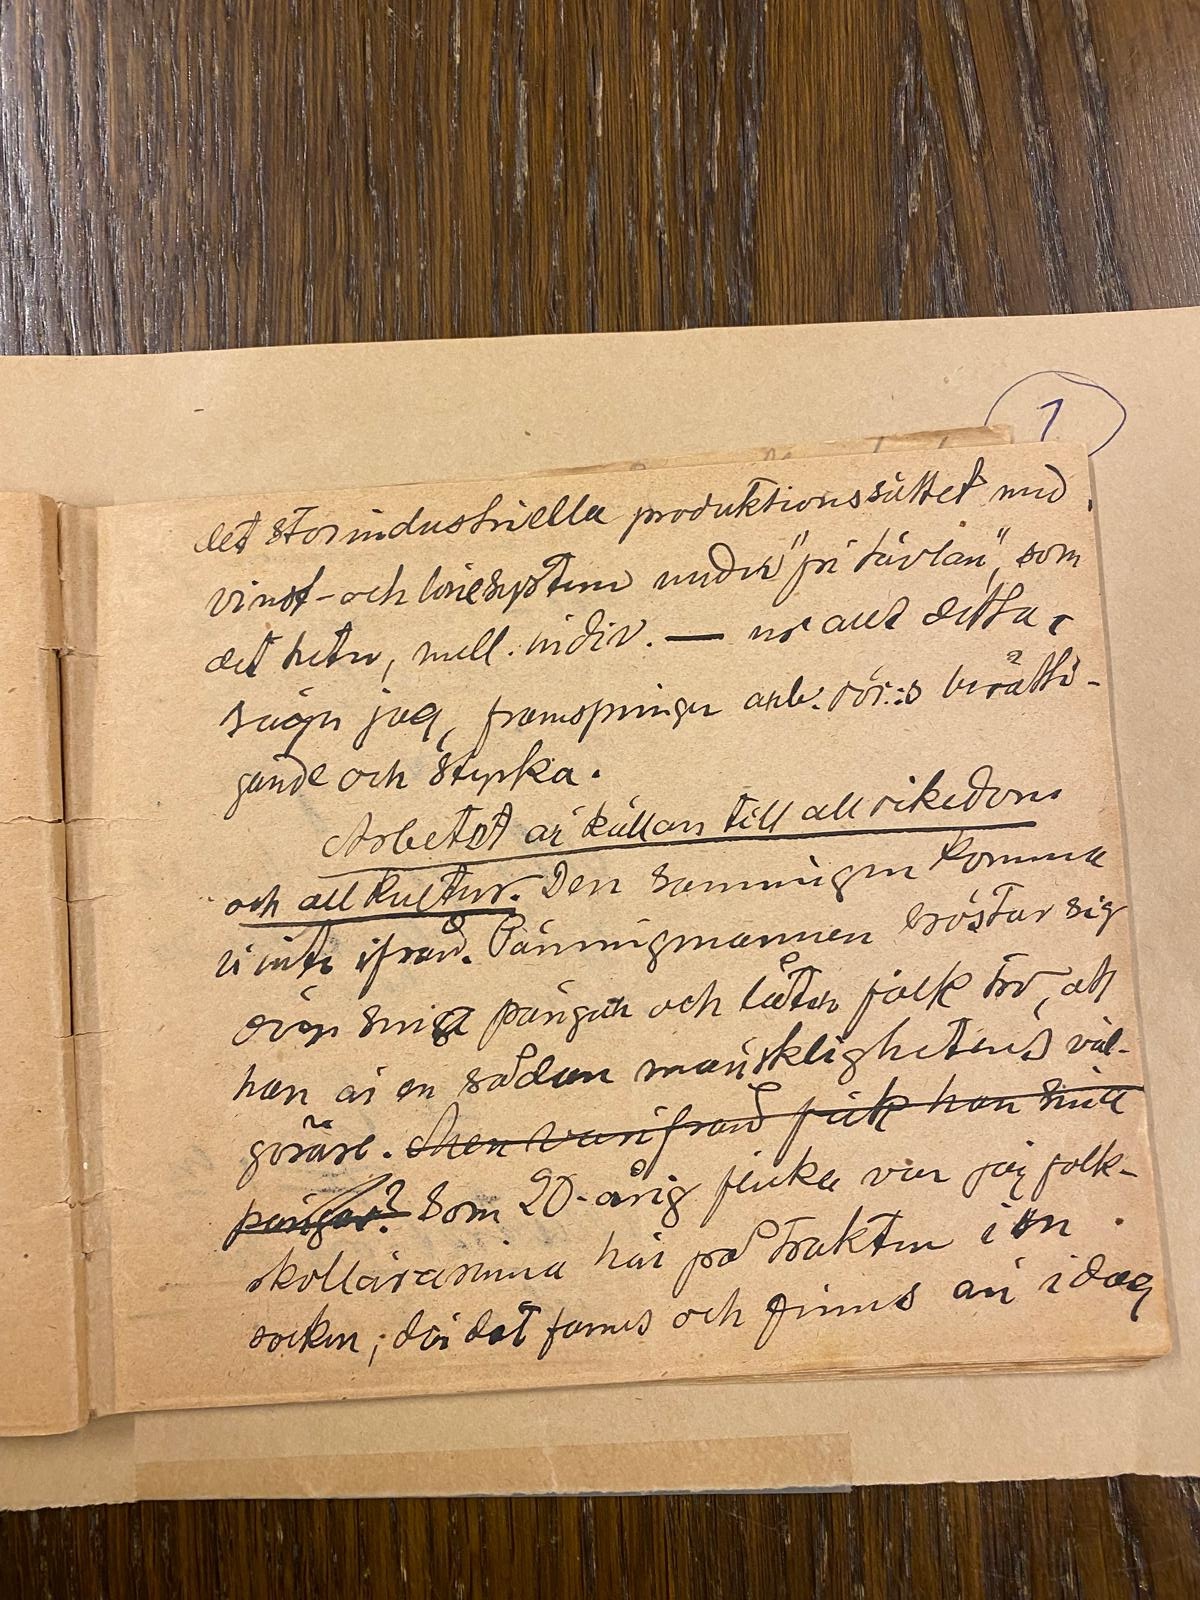 1
det storindustriella produktionssättet med
vinst- och lönesystem under "fri tävlan", som
det heter, mell. indiv. — ur allt detta,
säger jag, framspringer arb. rör:s berätti-
gande och styrka.
Arbetet är källan till all rikedom
och all kultur. Den sanningen komma
vi inte ifrån. Penningmannen bröstar sig
över sina pängar och låter folk tro, att
han är en sådan mänsklighetens väl-
görare. Men varifrån fick han sina
pängar? Som 20-årig flicka var jag folk-
skollärarinna här på trakten i en
socken, där det fanns och finns än idag